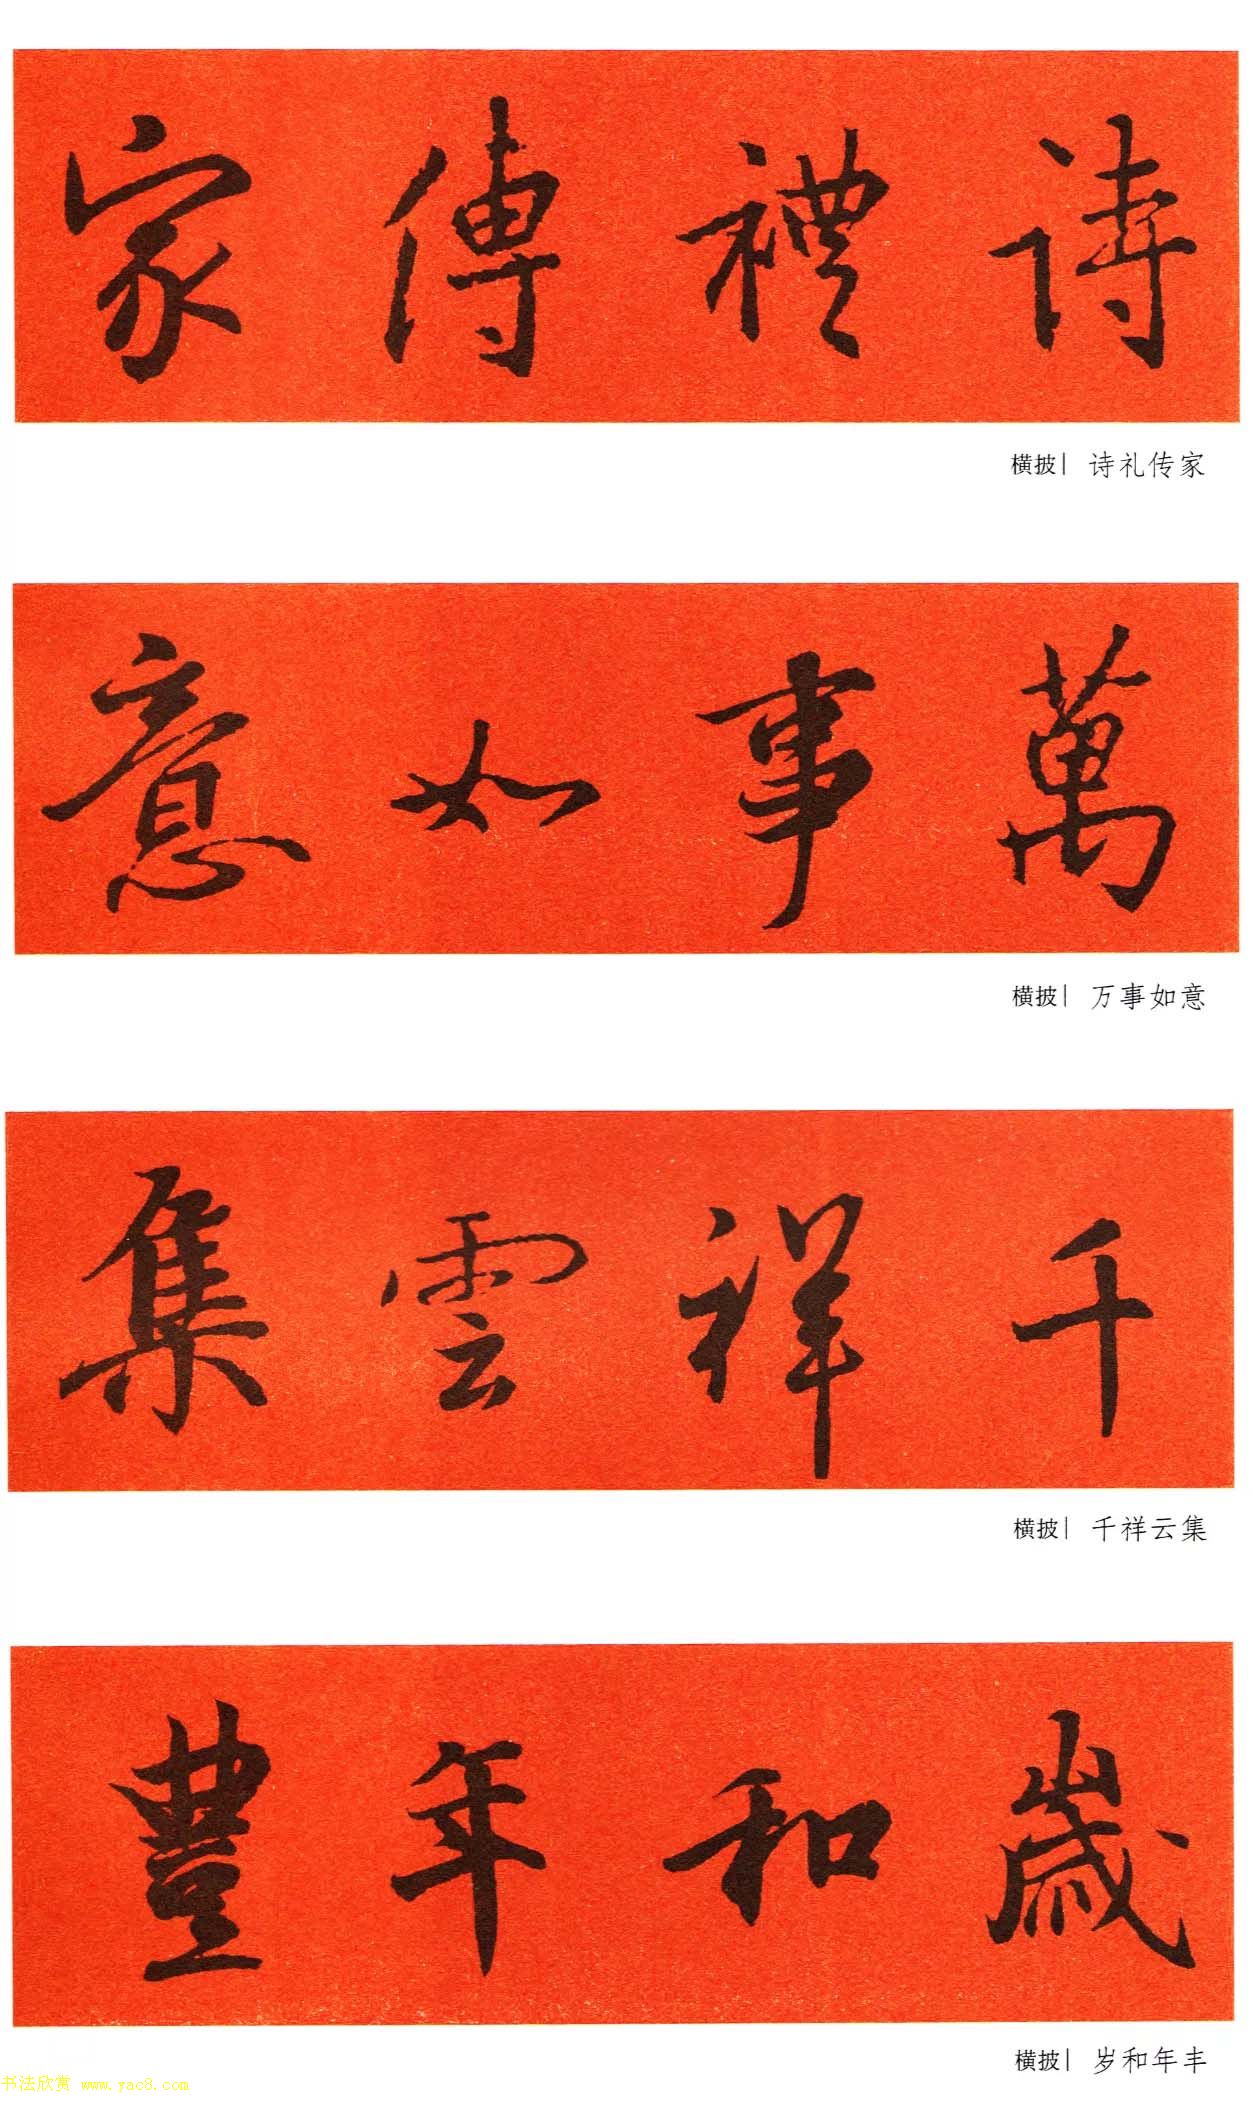 詩禮傳家
横披| 诗礼传家
萬事如意
横披| 万事如意
千祥雲集
横披| 千祥云集
歲和年豐
横披| 岁和年丰
书法欣赏 www.yac8.com